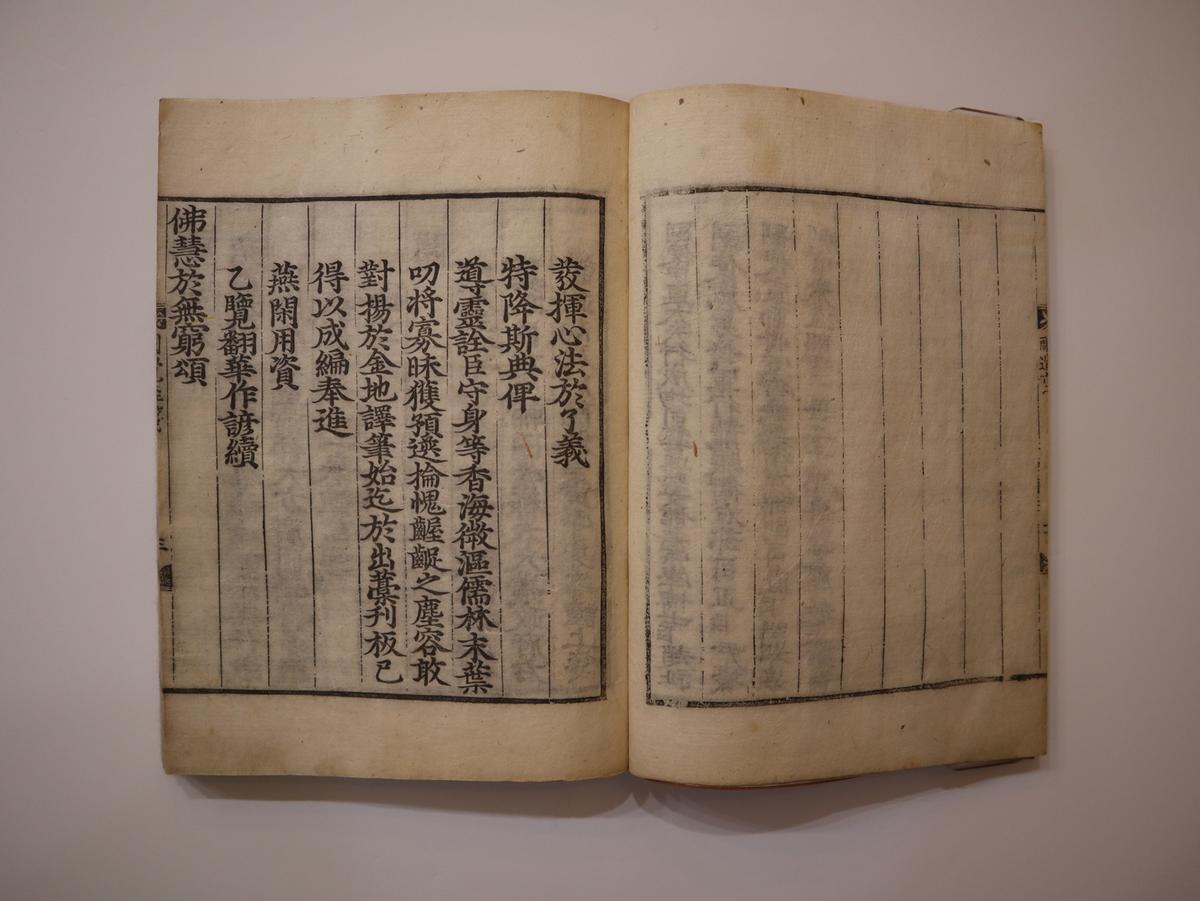 發揮心法於了義
特降斯典俾
導靈詮臣守身等香海微漚儒林末葉
叨將寡昧獲預遴掄愧齷齪之塵容敢
對揚於金地譯筆始迄於出藁刊板已
得以成編奉進
燕閑用資
乙覽翻華作諺續
佛慧於無窮頌
三